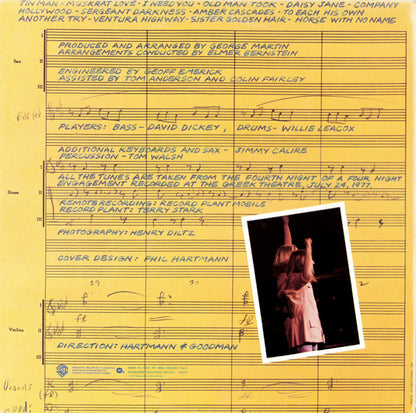 TIN MAN · MUSKRAT LOVE · I NEED YOU · OLD MAN TOOK · DAISY JANE · COMPANY
HOLLYWOOD · SERGEANT DARKNESS · AMBER CASCADES · TO EACH HIS OWN
ANOTHER TRY · VENTURA HIGHWAY · SISTER GOLDEN HAIR · HORSE WITH NO NAME
I
PRODUCED AND ARRANGED BY GEORGE MARTIN
ARRANGEMENTS CONDUCTED BY ELMER BERNSTEIN
Sax. II
ENGINEERED BY GEOFF EMERICK
ASSISTED BY TOM ANDERSON AND COLIN FAIRLEY
III
PLAYERS: BASS - DAVID DICKEY, DRUMS - WILLIE LEACOX
ADDITIONAL KEYBOARDS AND SAX - JIMMY CALIRE
PERCUSSION - TOM WALSH
I
ALL THE TUNES ARE TAKEN FROM THE FOURTH NIGHT OF A FOUR NIGHT
ENGAGEMENT RECORDED AT THE GREEK THEATRE, JULY 24, 1977.
Brass II
REMOTE RECORDING: RECORD PLANT MOBILE
RECORD PLANT: TERRY STARK
III
PHOTOGRAPHY: HENRY DILTZ
COVER DESIGN: PHIL HARTMANN
29 30 31
I
Violins II
III
DIRECTION: HARTMANN & GOODMAN